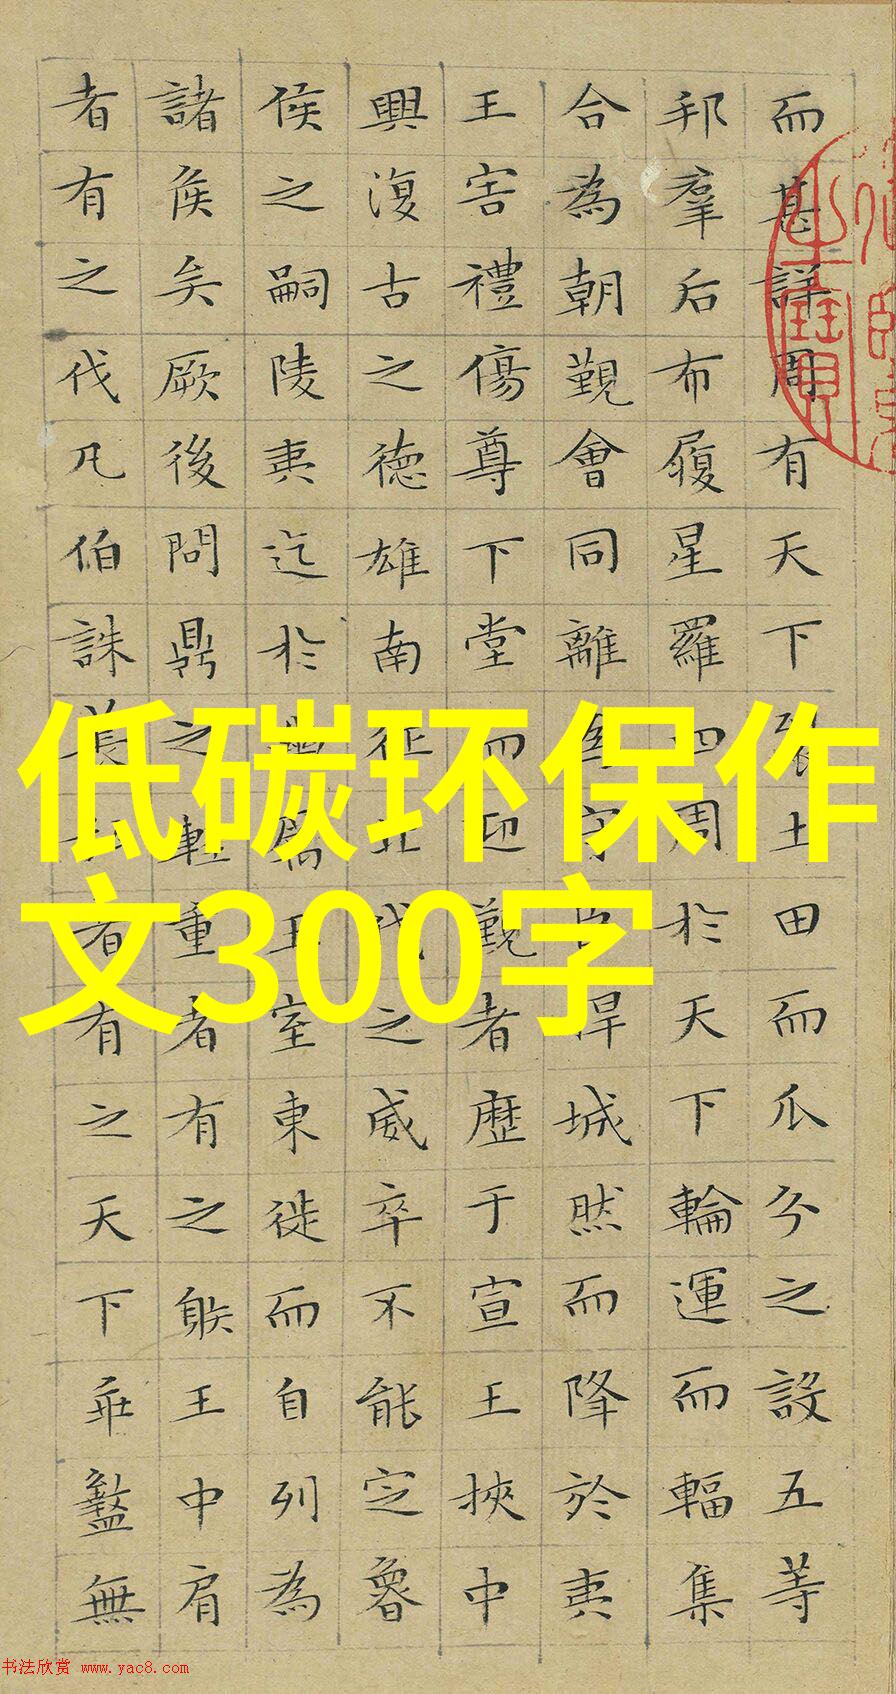 而甚詳周有天下裂土田而瓜分之設五等
邦羣后布履星羅四周於天下輪運而輻集
合為朝覲會同離為守臣捍城然而降於夷
王害禮傷尊下堂而迎覲者歷于宣王挾中
興復古之德雄南征北伐之威卒不能定魯
侯之嗣陵夷迄於幽厲王室東徙而自列為
諸侯矣厥後問鼎之輕重者有之射王中肩
者有之伐凡伯誅萇弘者有之天下乖盭無
低碳环保作
文300字
书法欣赏 www.yac8.com